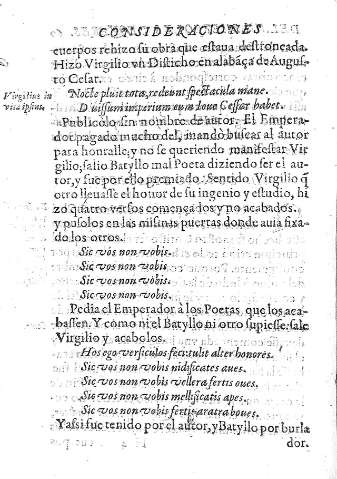 CONSIDERACIONES
cuerpos rehizo su obra que estaua destroncada.
Hizo Virgilio vn Disticho en alabāça de Augus-
to Cesar.
Virgilius in
vita ipsius.
Nocte pluit tota, redeunt spectacula mane.
Diuissum imperium cum Ioue Cessar habet.
Publicolo sin nombre de autor. El Empera-
dor pagado mucho del, mandò buscar al autor
para honralle; y no se queriendo manifestar Vir
gilio; salio Batyllo mal Poeta diziendo ser el au-
tor, y fue por ello premiado. Sentido Virgilio q̄
otro lleuasse el honor de su ingenio y estudio, hi
zo quatro versos començados y no acabados.
y pusolos en las mismas puertas donde auia fixa-
do los otros.
Sic vos non vobis.
Sic vos non vobis.
Sic vos non vobis.
Sic vos non vobis.
Pedia el Emperador à los Poetas, que los aca-
bassen. Y como ni el Batyllo ni otro supiesse: sale
Virgilio y acabolos.
Hos ego versiculos feci tulit alter honores.
Sic vos non vobis nidificates aues.
Sic vos non vobis vellera fertis oues.
Sic vos non vobis mellificatis apes.
Sic vos non vobis fertis aratra boues.
Y assi fue tenido por el autor, y Batyllo por burla
dor.